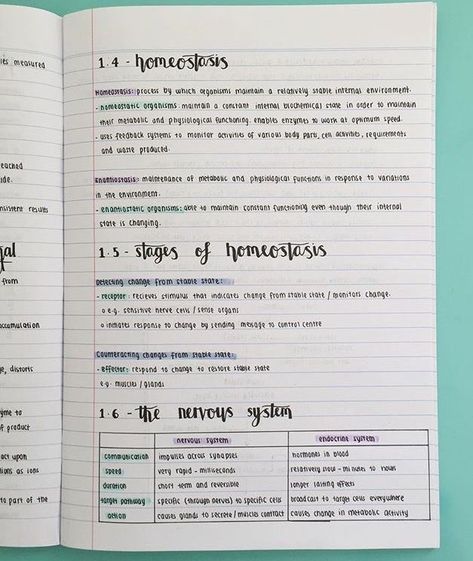 es measured
eached
ide.
nsistent results
from
accumulation
distorts
yme to
f product
act upon
ions as ions
to part of the
1.4 - homeostasis
Homeostasis: process by which organisms maintain a relatively stable internal environment.
- homeostatic organisms maintain a constant internal biochemical state in order to maintain
their metabolic and physiological functioning. enables enzymes to work at optimum speed.
- uses feedback systems to monitor activities of various body parts, cell activities, requirements
and waste produced.
Enantiostasis: maintenance of metabolic and physiological functions in response to variations
in the environment.
- enantiostatic organisms: able to maintain constant functioning even though their internal
state is changing.
1.5 - stages of homeostasis
Detecting change from stable state:
- receptor: recieves stimulus that indicates change from stable state / monitors change.
o e.g. sensitive nerve cells / sense organs
o initiates response to change by sending message to control centre
Counteracting changes from stable state:
- effector: respond to change to restore stable state
e.g. muscles / glands
1.6 - the nervous system
nervous system endocrine system
communication impulses across synapses hormones in blood
speed very rapid - milliseconds relatively slow - minutes to hours
duration short term and reversible longer lasting effects
target pathway specific (through nerves) to specific cells broadcast to target cells everywhere
action causes glands to secrete / muscles contract causes change in metabolic activity